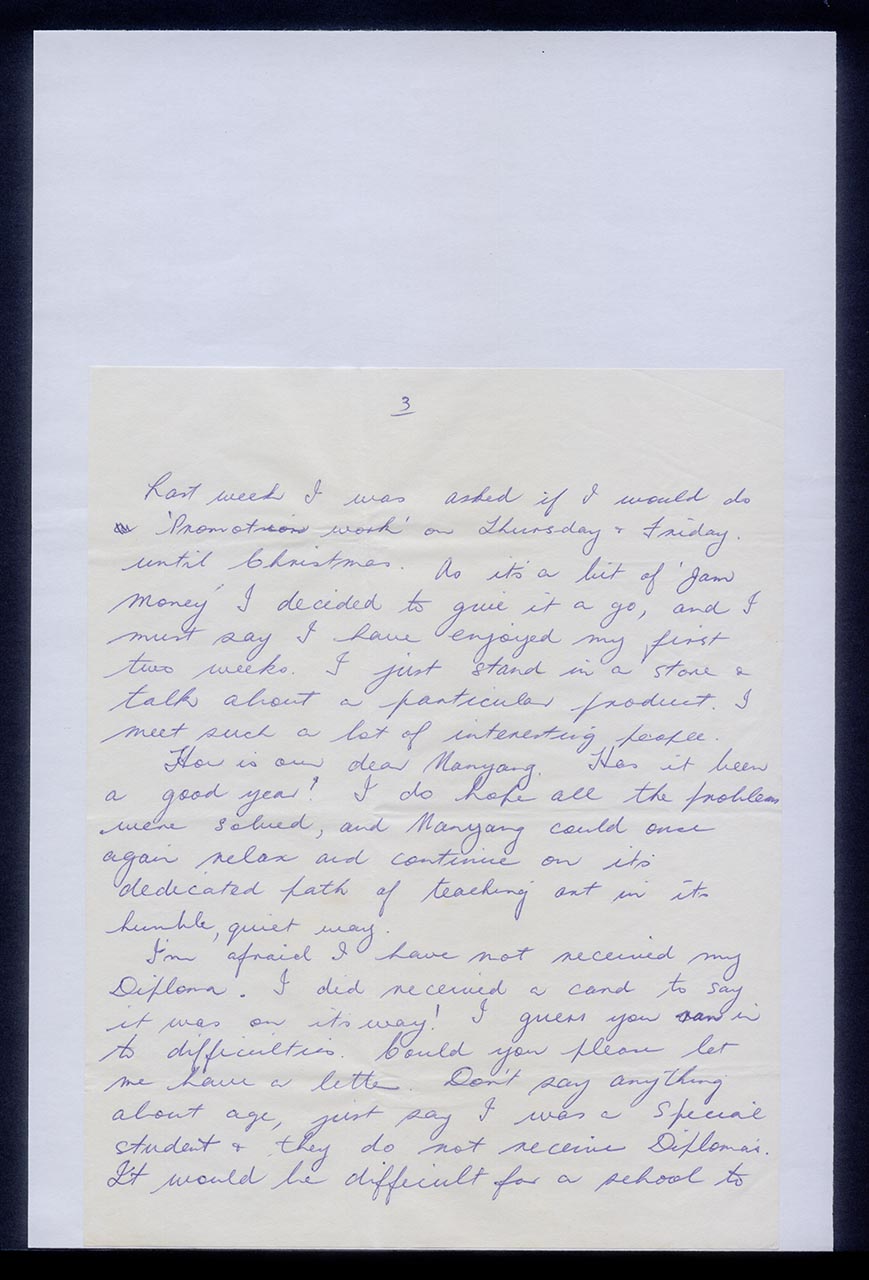 3
Last week I was asked if I would do
'Promotion work' on Thursday & Friday.
until Christmas. As it's a bit of 'Jam
Money' I decided to give it a go, and I
must say I have enjoyed my first
two weeks. I just stand in a store &
talk about a particular product. I
meet such a lot of interesting people.
How is our dear Nanyang. Has it been
a good year? I do hope all the problems
were solved, and Nanyang could once
again relax and continue on its
dedicated path of teaching art in its
humble, quiet way.
I'm afraid I have not received my
Diploma. I did received a card to say
it was on its way! I guess you ran in
to difficulties. Could you please let
me have a letter. Don't say anything
about age, just say I was a Special
student & they do not receive Diploma's.
It would be difficult for a school to